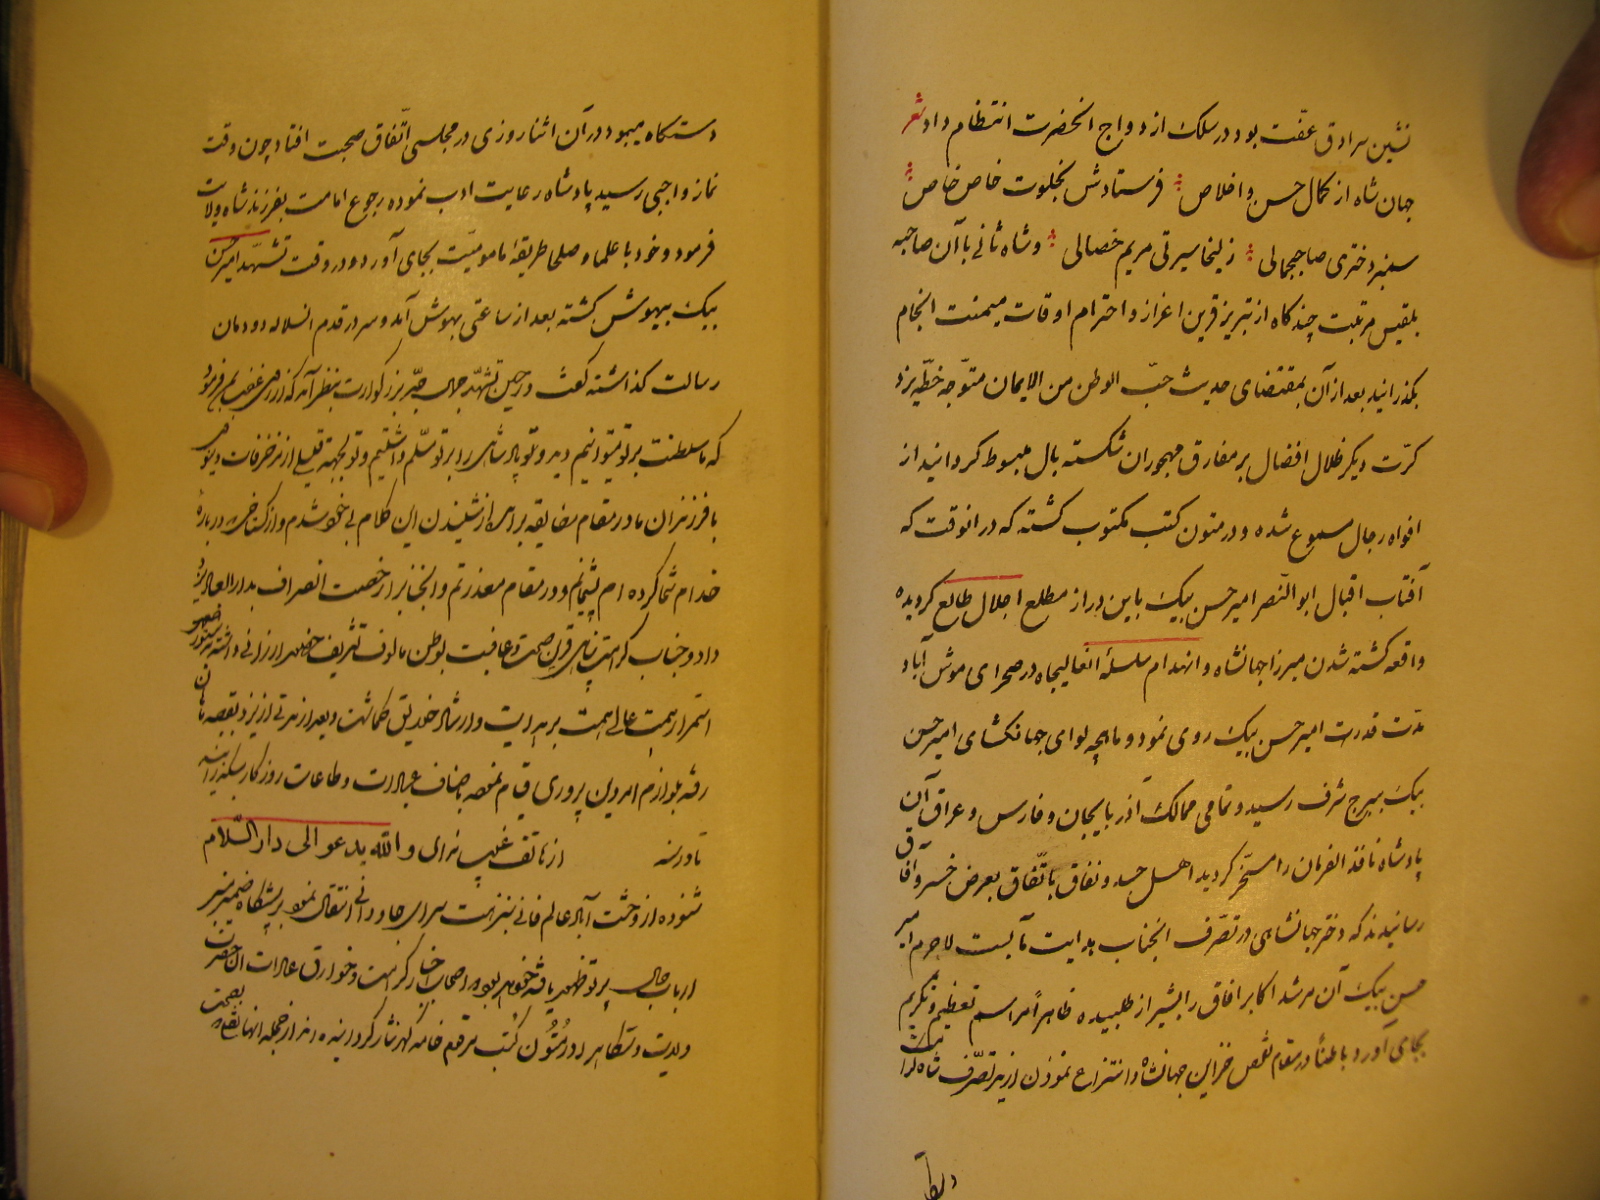 نشین سرادق عفّت بود در سلک ازدواج انحضرت انتظام داد شعر
جهان شاه از کمال حسن و اخلاص فرستادش بخلوت خاص خاص
سمنبر دختری صاحبجمالی زلیخا سیرتی مریم خصالی و شاه ثانی با آن صاحبه
بلقیس مرتبت چند کاه از تبریز قرین اعزاز و احترام اوقات میمنت انجام
بکذرانید بعد از آن بمقتضای حدیث حبّ الوطن من الایمان متوّجه خطّه یزد
کرّت دیکر ظلال افضال بر مفارق مهجوران شکسته بال مبسوط کردانید از
افواه رجال مسموع شده و در متون کتب مکتوب کشته که در انوقت که
آفتاب اقبال ابو النّصر امیر حسن بیک باین دراز مطلع اجلال طالع کردیده
واقعه کشته شدن میرزا جهانشاه و انهدام سلسلهٔ انعالیجاه در صحرای موش آباد
مدّت قدرت امیر حسن بیک روی نمود و ماهچه لوای جهانکشای امیر حسن
بیک ببرج شرف رسید و تمامی ممالک آذربایجان و فارس و عراق آن
پادشاه نافذ الفرمان را مسخّر کردید اهل حسد و نفاق باتّفاق بعرض خسرو آفاق
رسانیدند که دختر جهانشاهی در تصّرف انجناب هدایت مآبست لاجرم امیر
حسن بیک آن مرشد اکابر افاق را بشیراز طلبیده ظاهراً مراسم تعظیم و تکریم
بجای آورد و باطناً در مقام تفحص خزاین جهانشاه و انتزاع نمودن از ید تصّرف شاه
دستکاه میبود در آن اثنا روزی در مجلسی اتّفاق صحبت افتاد چون وقت
نماز واجبی رسید پادشاه رعایت ادب نموده رجوع امامت بفرزند شاه ولایت
فرمود و خود با علما و صلحا طریقهٔ مامومیّت بجای آورد و در وقت تشهّد امیر حسن
بیک بیهوش کشته بعد از ساعتی بهوش آمد و سر در قدم انسلاله دودمان
رسالت کذاشته کفت در حین تشهّد جمال جدّ بزرکوارت بنظر آمد که از روی غضب بمن فرمود
که ما سلطنت بر تو میتوانیم دید و تو پادشاهی را بر تو مسلّم داشتیم و تو بجهة قلیلی از مزخرفات دنیوی
با فرزندان ما در مقام مضایقه براهی از شنیدن این کلام بی خود شدم و از کستاخی که در بارهٔ
خدام شما کرده ام پشیمانم و در مقام معذرتم و انجناب را رخصت انصراف بدار العباد یزد
داد و جناب کرامت پناهی قرین صحت و عافیت بوطن مالوف تشریف حضور ارزانی داشته
استمرار همت عالی نهمت بر هدایت و ارشاد خلایق کماشت و بعد از مدتی از یزد بقصبه
رفته بلوازم امر دین پروری قیام نموده باضاف عبادات و طاعات روزکار میکذرانید
تا در سنه از هاتف غیب ندای و الله یدعو الی دار السّلام
شنوده از وحشت آباد عالم فانی بنزهت سرای جاودانی انتقال نمود بر پیشکاه ضمیر منیر
ارباب حال پرتو ظهور یافته خواهد بود که اصحاب اخبار کرامت و خوارق عادات انحضرت
و در متُون کتب مرقم خامه کهر نثار کردانیده اند از جمله انها